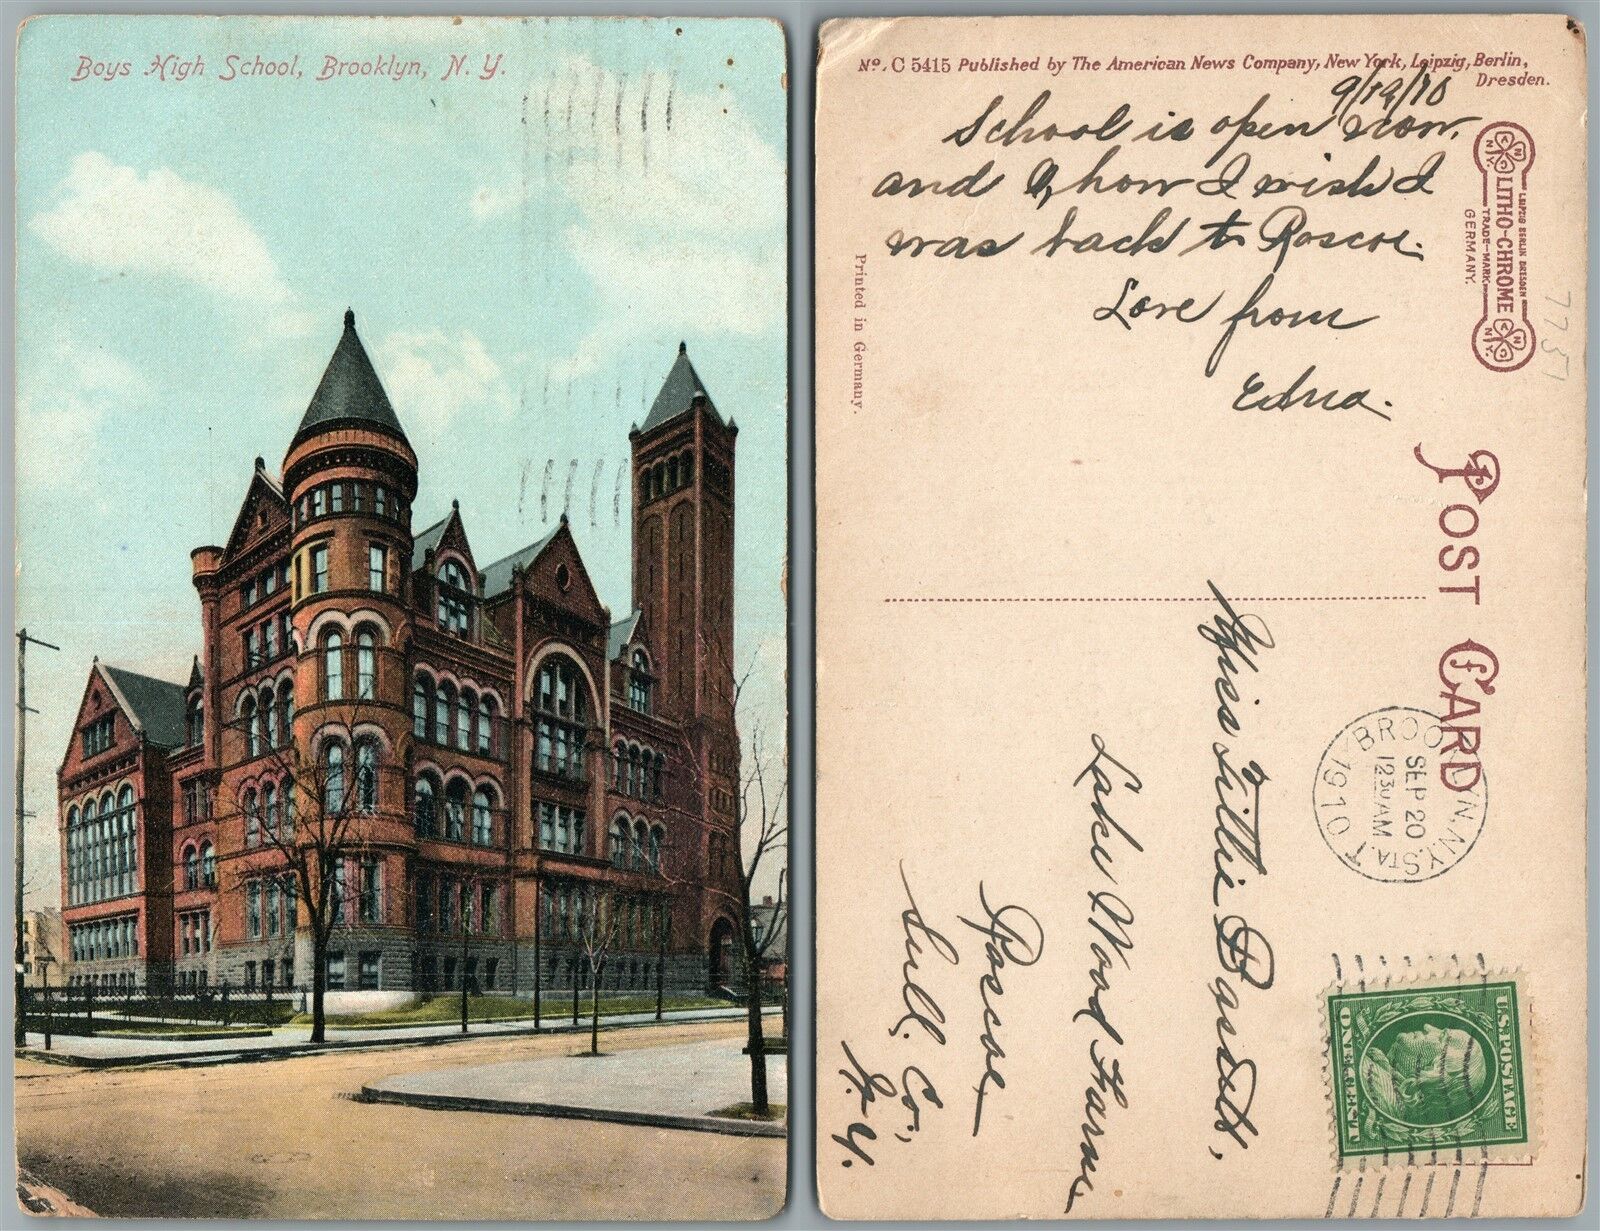 Boys High School, Brooklyn, N. Y.
No. C 5415 Published by The American News Company, New York, Leipzig, Berlin,
Dresden.
9/19/10
School is open now.
and O, how I wish I
was back to Roscoe.
Love from
Edna.
Printed in Germany.
LEIPZIG BERLIN DRESDEN
LITHO-CHROME
TRADE-MARK
GERMANY.
N.Y.
N.Y.
7751
POST CARD
BROOKLYN, N.Y. STA. T
SEP 20
1230 AM
1910
Miss Tillie Bassett,
Lake Wood Farm
Roscoe
Sull. Co.,
N. Y.
U.S. POSTAGE
ONE CENT